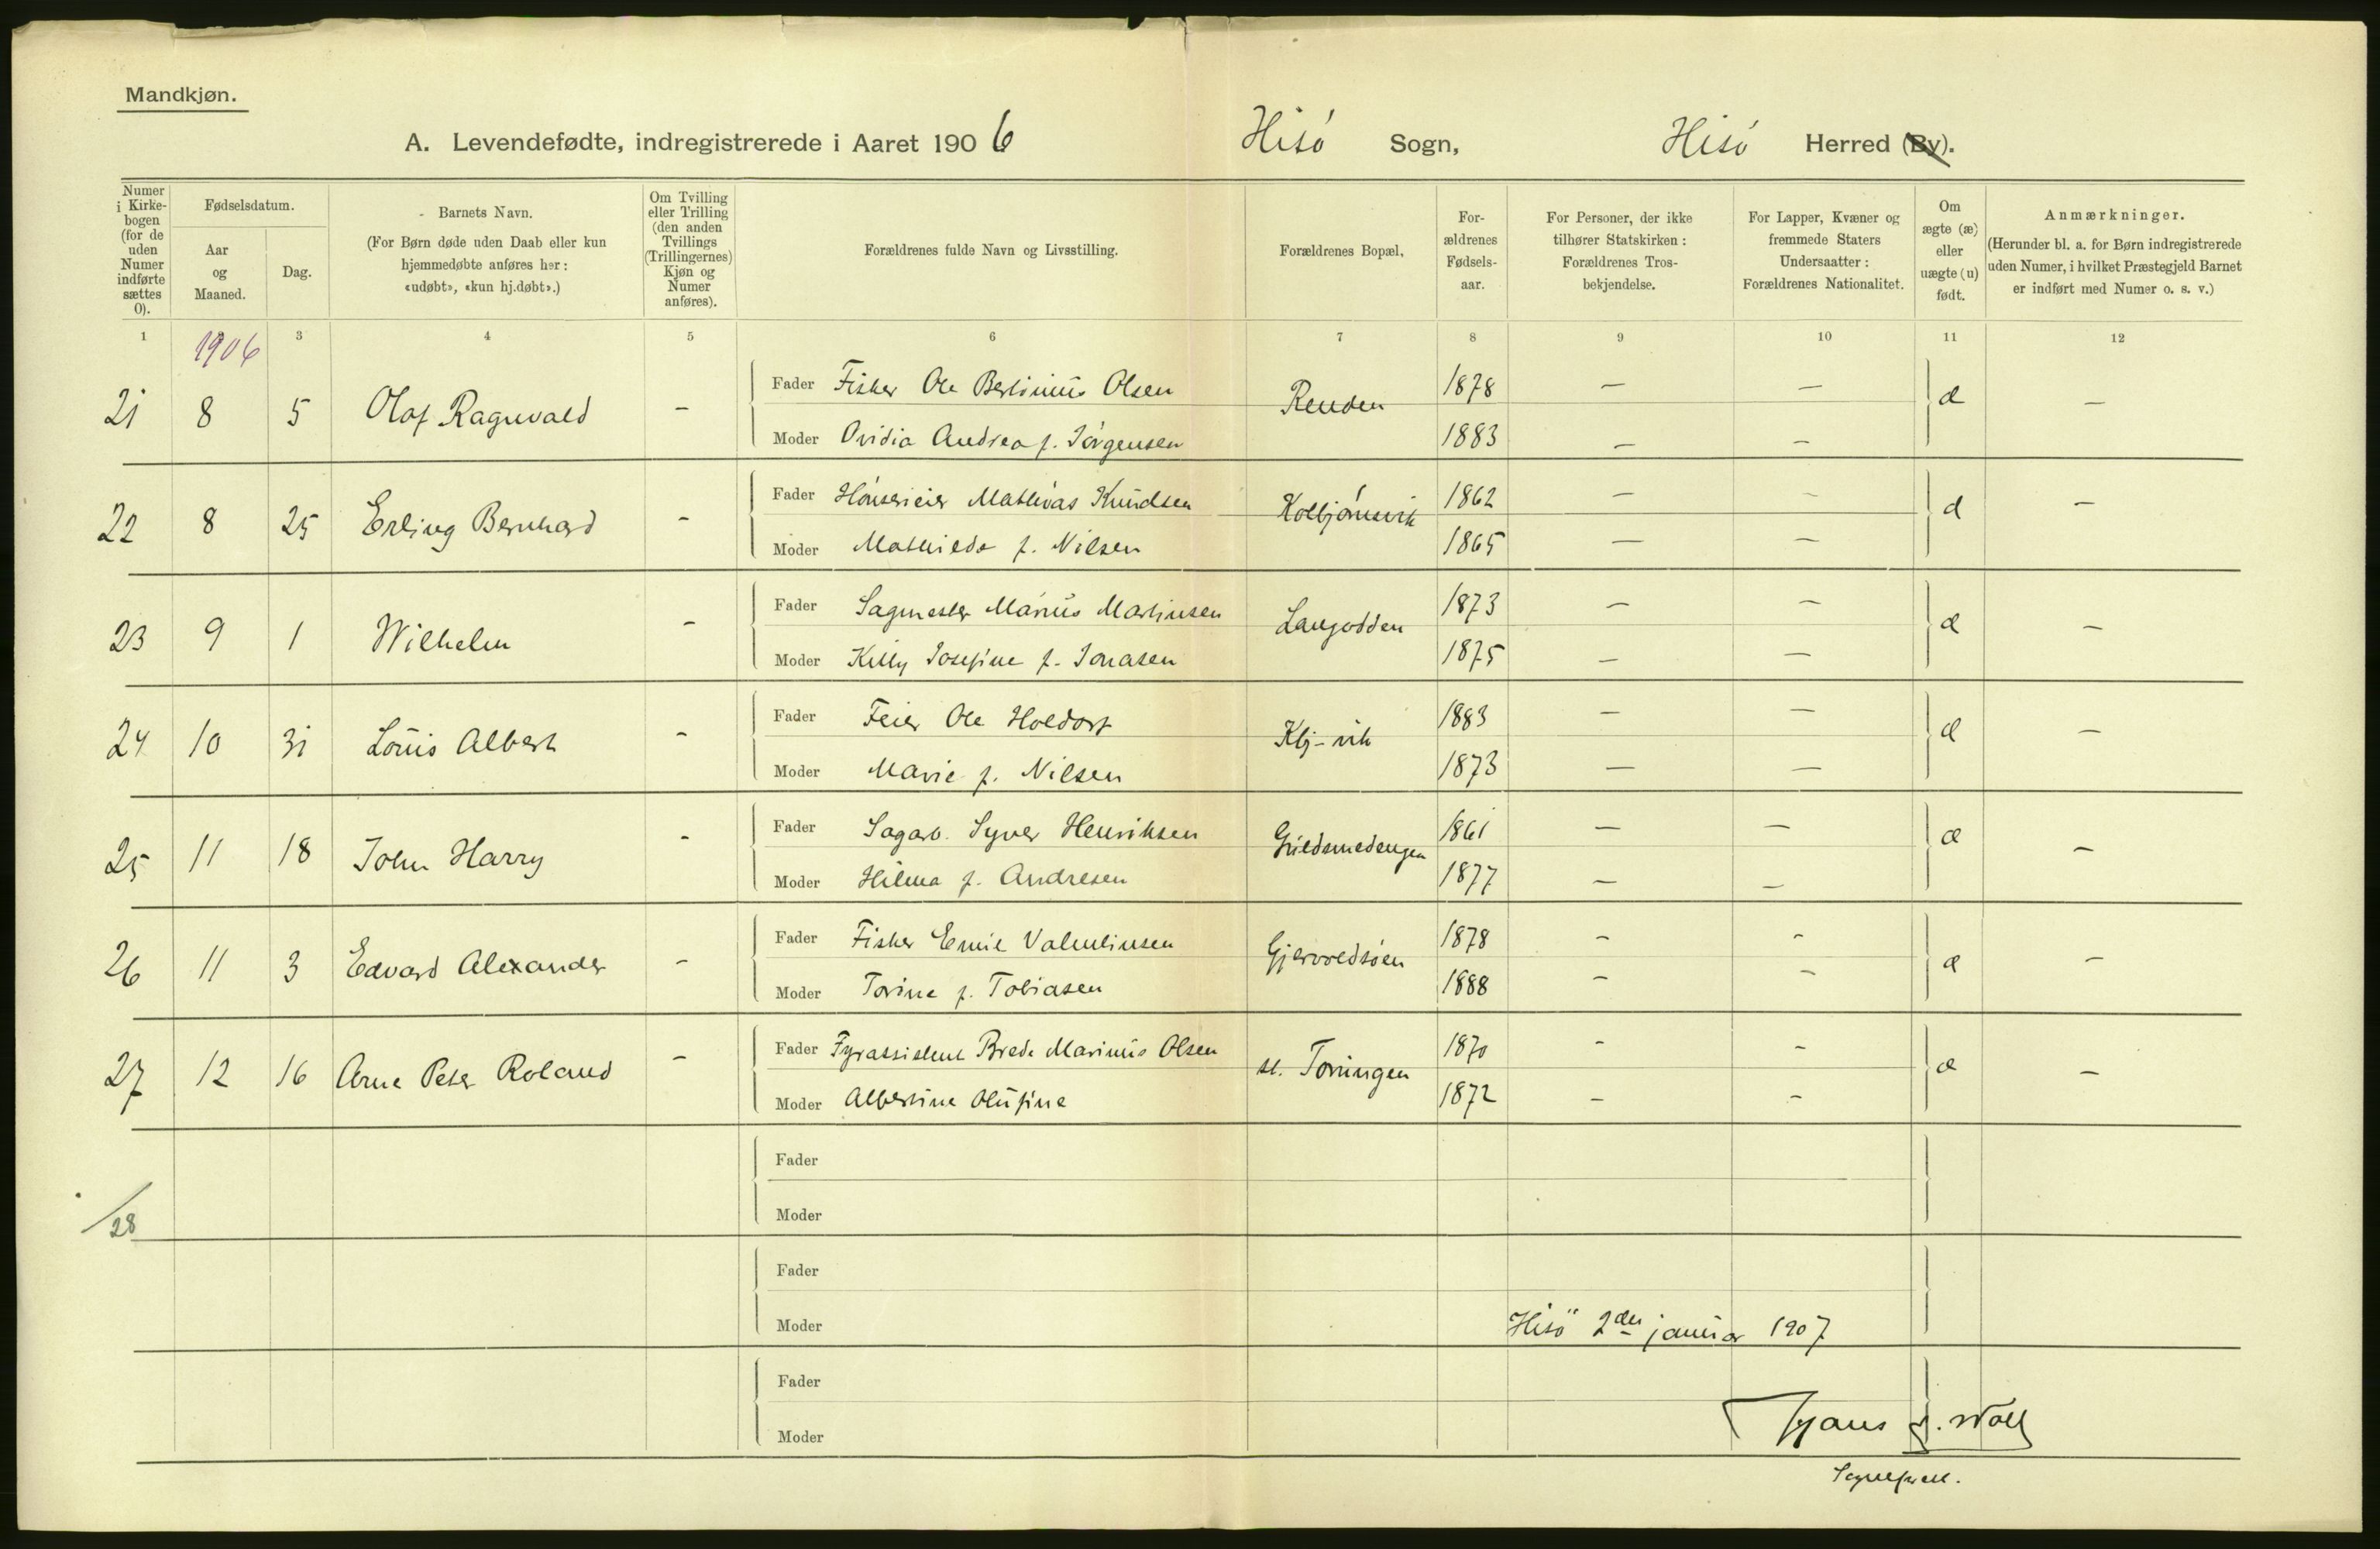 Mandkjøn.
A. Levendefødte, indregistrerede i Aaret 1906 Hisö Sogn, Hisö Herred (By).
Numer i Kirkebogen (for de uden Numer indførte sættes 0).
Fødselsdatum.
Aar og Maaned.
Dag.
Barnets Navn.
(For Børn døde uden Daab eller kun hjemmedøbte anføres her: «udøbt», «kun hj.døbt».)
Om Tvilling eller Trilling (den anden Tvillings (Trillingernes) Kjøn og Numer anføres).
Forældrenes fulde Navn og Livsstilling.
Forældrenes Bopæl,
Forældrenes Fødselsaar.
For Personer, der ikke tilhører Statskirken: Forældrenes Trosbekjendelse.
For Lapper, Kvæner og fremmede Staters Undersaatter: Forældrenes Nationalitet.
Om ægte (æ) eller uægte (u) født.
Anmærkninger.
(Herunder bl. a. for Børn indregistrerede uden Numer, i hvilket Præstegjeld Barnet er indført med Numer o. s. v.)
1 3 4 5 6 7 8 9 10 11 12
1906
21 8 5 Olaf Ragnvald - Fader Fisker Ole Bertinius Olsen Renden 1878 — — æ —
Moder Ovidia Andrea f. Jörgensen 1883 — —
22 8 25 Erling Bernhard - Fader Hönserieier Mathias Knudsen Kolbjörnsvik 1862 — — æ —
Moder Mathilde f. Nilsen 1865 — —
23 9 1 Wilhelm - Fader Sagmester Marius Martinsen Langodden 1873 — — æ —
Moder Kitty Josefine f. Jonasen 1875 — —
24 10 31 Louis Albert - Fader Feier Ole Holdorf Kbj-vik 1883 — — æ —
Moder Marie f. Nilsen 1873 — —
25 11 18 John Harry - Fader Sagarb. Syver Henriksen Guldsmedengen 1861 — — æ —
Moder Hilma f. Andresen 1877 — —
26 11 3 Edvard Alexander - Fader Fisker Emil Valentinsen Gjervoldsöen 1878 - - æ -
Moder Torine f. Tobiasen 1888 - -
27 12 16 Arne Peter Roland - Fader Fyrassistent Brede Marinius Olsen st. Torungen 1870 - - æ -
Moder Albertine Olufine 1872 - -
Fader
/28 Moder
Fader
Moder Hisö 2den januar 1907
Fader
Moder Hans
Sogneprest.